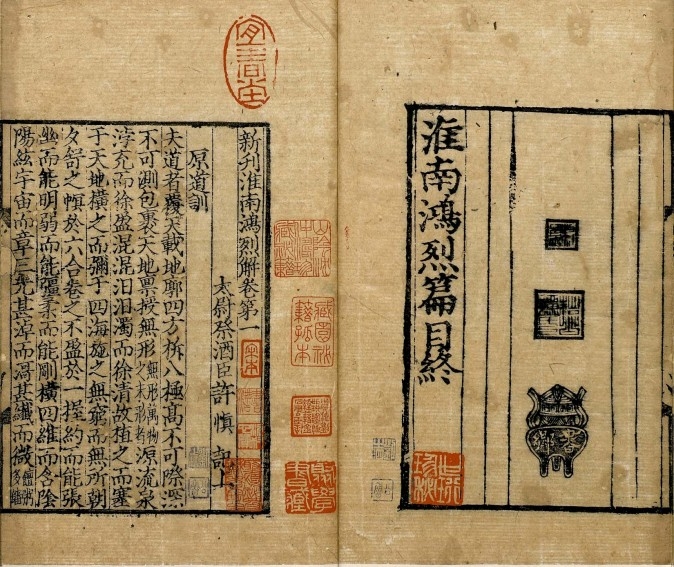 淮南鴻烈篇目終
新刊淮南鴻烈解卷第一
太尉祭酒臣許慎記上
原道訓
夫道者覆天載地廓四方柝八極高不可際深
不可測包裹天地禀授無形無形萬物之未形者源流泉
浡充而徐盈混混汩汩濁而徐清故植之而塞
于天地横之而彌于四海施之無窮而無所朝
夕舒之幎於六合卷之不盈於一握約而能張
幽而能明弱而能彊柔而能剛横四維而含陰
陽紘宇宙而章三光甚淖而滒甚纖而微
宜春堂